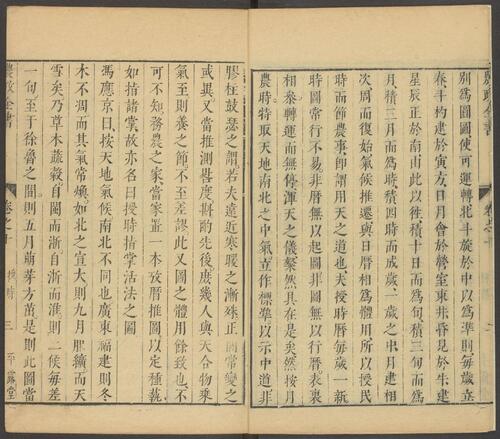 農政全書 卷之十
別爲圖圖使可運轉北斗旋於中以爲準則每歲立
春斗杓建於寅方日月會於營室東井昏見於午建
星辰正於南由此以往積十日而爲旬積三旬而爲
月積三月而爲時積四時而成歲一歲之中月建相
次周而復始氣候推遷與日曆相爲體用所以授民
時而節農事即謂用天之道也夫授時曆每歲一新
時圖常行不易非曆無以起圖非圖無以行曆表裏
相參轉運而無停渾天之儀粲然具在是矣然按月
農時特取天地南北之中氣立作標準以示中道非
膠柱鼓瑟之謂若夫遠近寒暖之漸殊正閏常變之
或異又當推測晷度斟酌先後庶幾人與天合物乘
氣至則養之節不至差謬此又圖之體用餘致也不
可不知務農之家當家置一本攷曆推圖以定種蓺
如指諸掌故亦名曰授時指掌活法之圖
馮應京曰按天地氣候南北不同也廣東福建則冬
木不凋而其氣常燠如北之宣大則九月服纊而天
雪矣乃草木蔬穀自閩而浙自浙而淮則二候每差
一旬至于徐魯之間則五月萌芽方茁是則此圖當
農政全書 卷之十 授時 三 平露堂